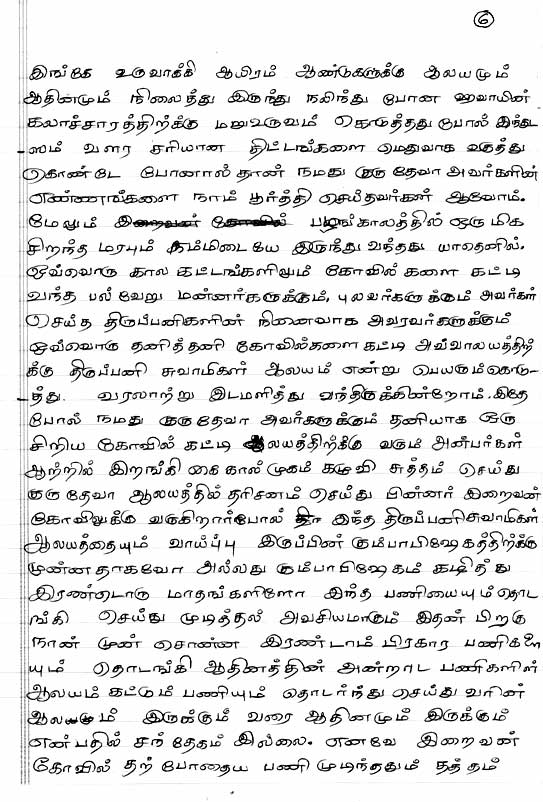 6
இங்கே உருவாக்கி ஆயிரம் ஆண்டுகளுக்கு ஆலயமும்
ஆதினமும் நிலைத்து இருந்து நலிந்து போன ஹவாயின்
கலாச்சாரத்திற்க்கு மறுஉருவம் கொடுத்தது போல் இந்து
ஸம் வளர சரியான திட்டங்களை மெதுவாக வகுத்து
கொண்டே போனால் தான் நமது குருதேவா அவர்களின்
எண்ணங்களை நாம் பூர்த்தி செய்தவர்கள் ஆவோம்.
மேலும் பழங்காலத்தில் ஒரு மிக
சிறந்த மரபும் நம்மிடையே இருந்து வந்தது யாதெனில்.
ஒவ்வொரு கால கட்டங்களிலும் கோவில்களை கட்டி
வந்த பல்வேறு மன்னர்களுக்கும், புலவர்களுக்கும் அவர்கள்
செய்த திருப்பணிகளின் நினைவாக அவரவர்களுக்கும்
ஒவ்வொரு தனித்தனி கோவில்களை கட்டி அவ்வாலயத்திற்
க்கு திருப்பணி சுவாமிகள் ஆலயம் என்று பெயரும்கொடு-
த்து. வரலாற்று இடமளித்து வந்திருக்கின்றோம். இதே
போல் நமது குருதேவா அவர்களுக்கும் தனியாக ஒரு
சிறிய கோவில் கட்டி ஆலயத்திற்க்கு வரும் அன்பர்கள்
ஆற்றில் இறங்கி கை கால் முகம் கழுவி சுத்தம் செய்து
குருதேவா ஆலயத்தில் தரிசனம் செய்து பின்னர் இறைவன்
கோவிலுக்கு வருகிறார்போல் இந்த திருப்பணிசுவாமிகள்
ஆலயத்தையும் வாய்ப்பு இருப்பின் கும்பாபிஷேகத்திற்க்கு
முன்னதாகவோ அல்லது கும்பாபிஷேகம் கழித்து
இரண்டொரு மாதங்களிளோ இந்த பணியையும்தொட
ங்கி செய்து முடித்தல் அவசியமாகும் இதன் பிறகு
நான் முன் சொன்ன இரண்டாம் பிரகார பணிகளை
யும் தொடங்கி ஆதினத்தின் அன்றாட பணிகளில்
ஆலயம் கட்டும் பணியும் தொடர்ந்து செய்து வரின்
ஆலயமும் இருக்கும் வரை ஆதினமும் இருக்கும்
என்பதில் சந்தேதம் இல்லை. எனவே இறைவன்
கோவில் தற்போதைய பணி முடிந்ததும் தத்தம்